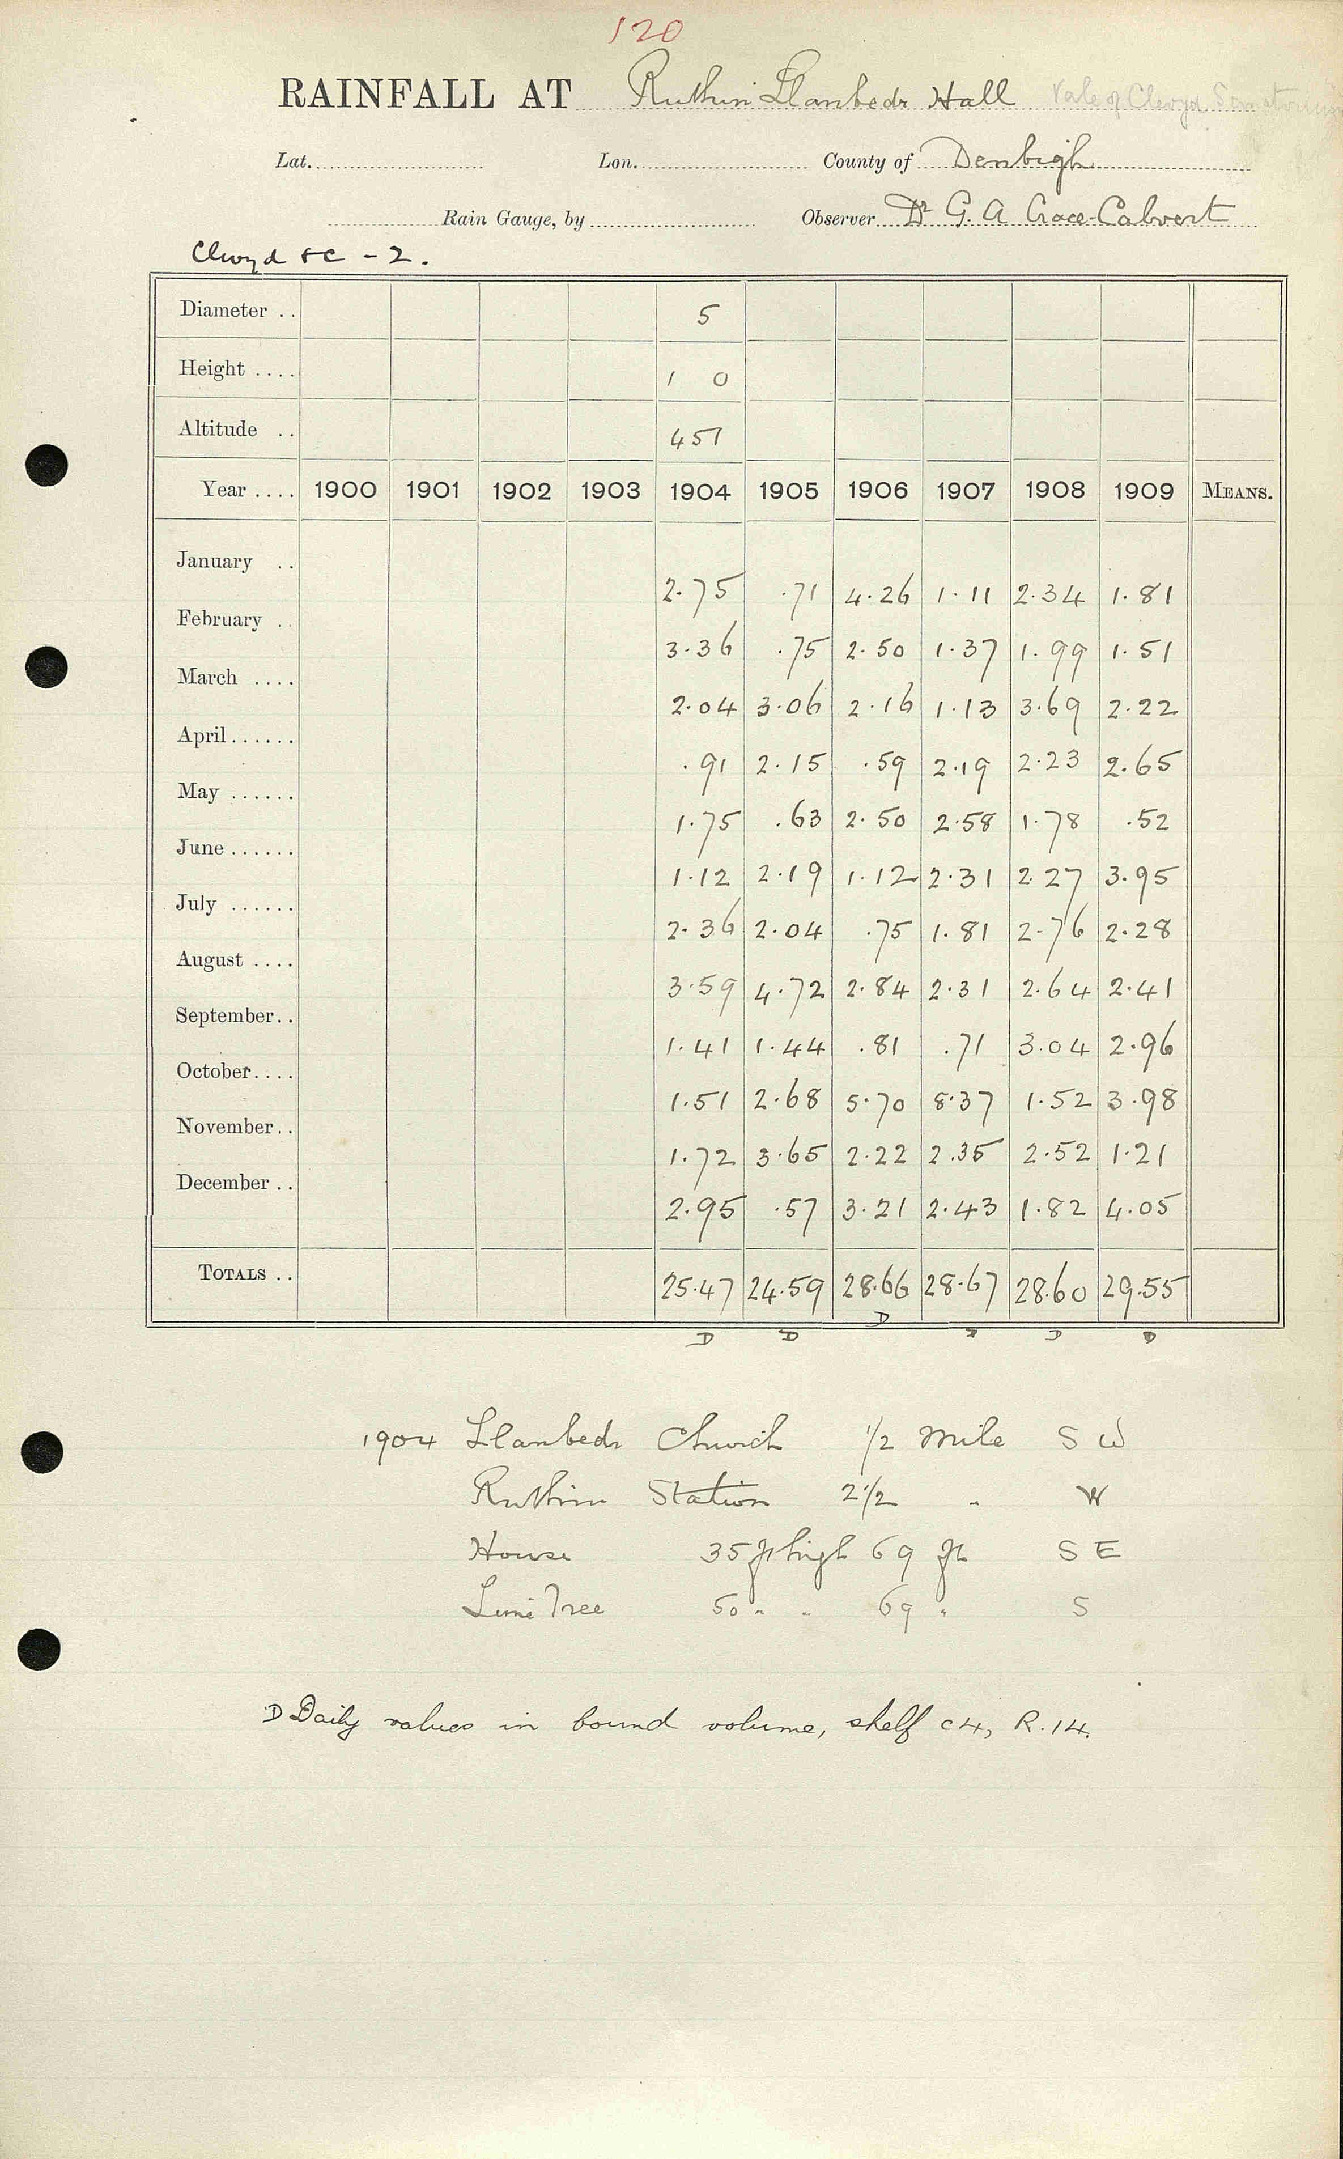 120
RAINFALL AT Ruthin Llanbedr Hall Vale of Clwyd Sanatorium
Lat. Lon. County of Denbigh
Rain Gauge, by Observer Dr G. A. Crace-Calvert
Clwyd &c - 2.
Diameter .. 5
Height .... 1 0
Altitude .. 451
Year .... 1900 1901 1902 1903 1904 1905 1906 1907 1908 1909 MEANS.
January .. 2.75 .71 4.26 1.11 2.34 1.81
February .. 3.36 .75 2.50 1.37 1.99 1.51
March .... 2.04 3.06 2.16 1.13 3.69 2.22
April...... .91 2.15 .59 2.19 2.23 2.65
May ...... 1.75 .63 2.50 2.58 1.78 .52
June...... 1.12 2.19 1.12 2.31 2.27 3.95
July ...... 2.36 2.04 .75 1.81 2.76 2.28
August .... 3.59 4.72 2.84 2.31 2.64 2.41
September.. 1.41 1.44 .81 .71 3.04 2.96
October.... 1.51 2.68 5.70 8.37 1.52 3.98
November.. 1.72 3.65 2.22 2.35 2.52 1.21
December .. 2.95 .57 3.21 2.43 1.82 4.05
TOTALS .. 25.47 24.59 28.66 28.67 28.60 29.55
D D D D D D
1904 Llanbedr Church 1/2 mile S W
Ruthin Station 2 1/2 " W
House 35 ft high 69 ft S E
Lime Tree 50 " " 69 " S
D Daily values in bound volume, shelf C4, R.14.